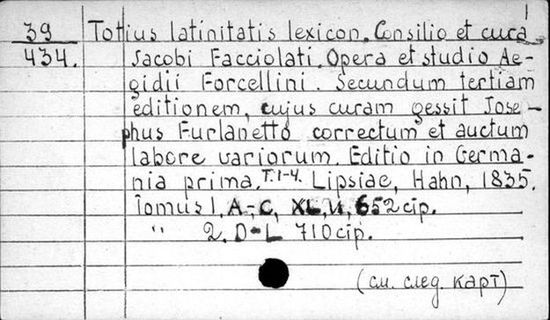 1
39 Totius latinitatis lexicon. Consilio et cura
434. Jacobi Facciolati. Opera et studio Ae-
gidii Forcellini. Secundum tertiam
editionem, cujus curam gessit Jose-
phus Furlanetto correctum et auctum
labore variorum. Editio in Germa-
nia prima. T. 1-4. Lipsiae, Hahn, 1835.
Tomus 1. A-C, XL, VI, 652 cip.
" 2. D-L 710 cip.
(см. след. карт)